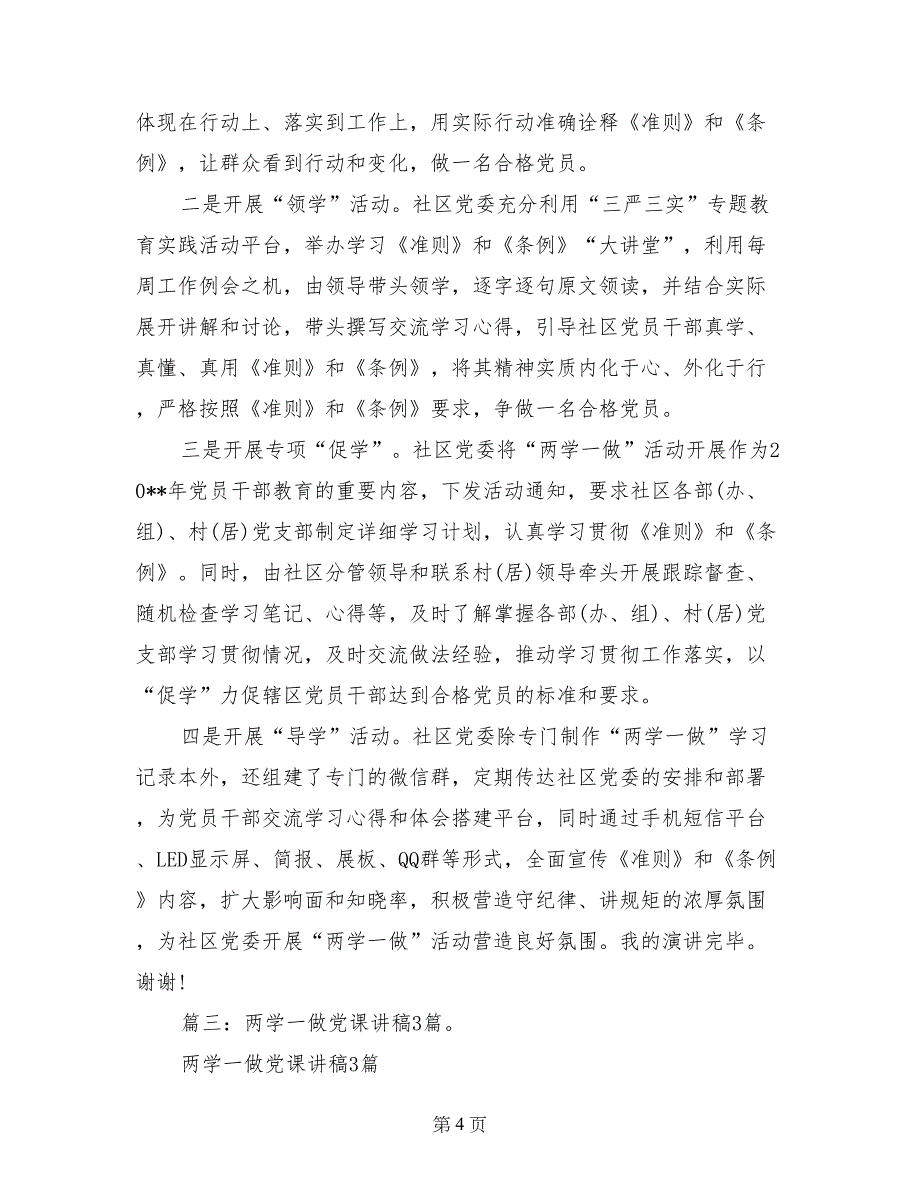 体现在行动上、落实到工作上，用实际行动准确诠释《准则》和《条
例》，让群众看到行动和变化，做一名合格党员。
二是开展“领学”活动。社区党委充分利用“三严三实”专题教
育实践活动平台，举办学习《准则》和《条例》“大讲堂”，利用每
周工作例会之机，由领导带头领学，逐字逐句原文领读，并结合实际
展开讲解和讨论，带头撰写交流学习心得，引导社区党员干部真学、
真懂、真用《准则》和《条例》，将其精神实质内化于心、外化于行
，严格按照《准则》和《条例》要求，争做一名合格党员。
三是开展专项“促学”。社区党委将“两学一做”活动开展作为2
0**年党员干部教育的重要内容，下发活动通知，要求社区各部(办、
组)、村(居)党支部制定详细学习计划，认真学习贯彻《准则》和《条
例》。同时，由社区分管领导和联系村(居)领导牵头开展跟踪督查、
随机检查学习笔记、心得等，及时了解掌握各部(办、组)、村(居)党
支部学习贯彻情况，及时交流做法经验，推动学习贯彻工作落实，以
“促学”力促辖区党员干部达到合格党员的标准和要求。
四是开展“导学”活动。社区党委除专门制作“两学一做”学习
记录本外，还组建了专门的微信群，定期传达社区党委的安排和部署
，为党员干部交流学习心得和体会搭建平台，同时通过手机短信平台
、LED显示屏、简报、展板、QQ群等形式，全面宣传《准则》和《条例
》内容，扩大影响面和知晓率，积极营造守纪律、讲规矩的浓厚氛围
，为社区党委开展“两学一做”活动营造良好氛围。我的演讲完毕。
谢谢!
篇三：两学一做党课讲稿3篇。
两学一做党课讲稿3篇
第 4 页